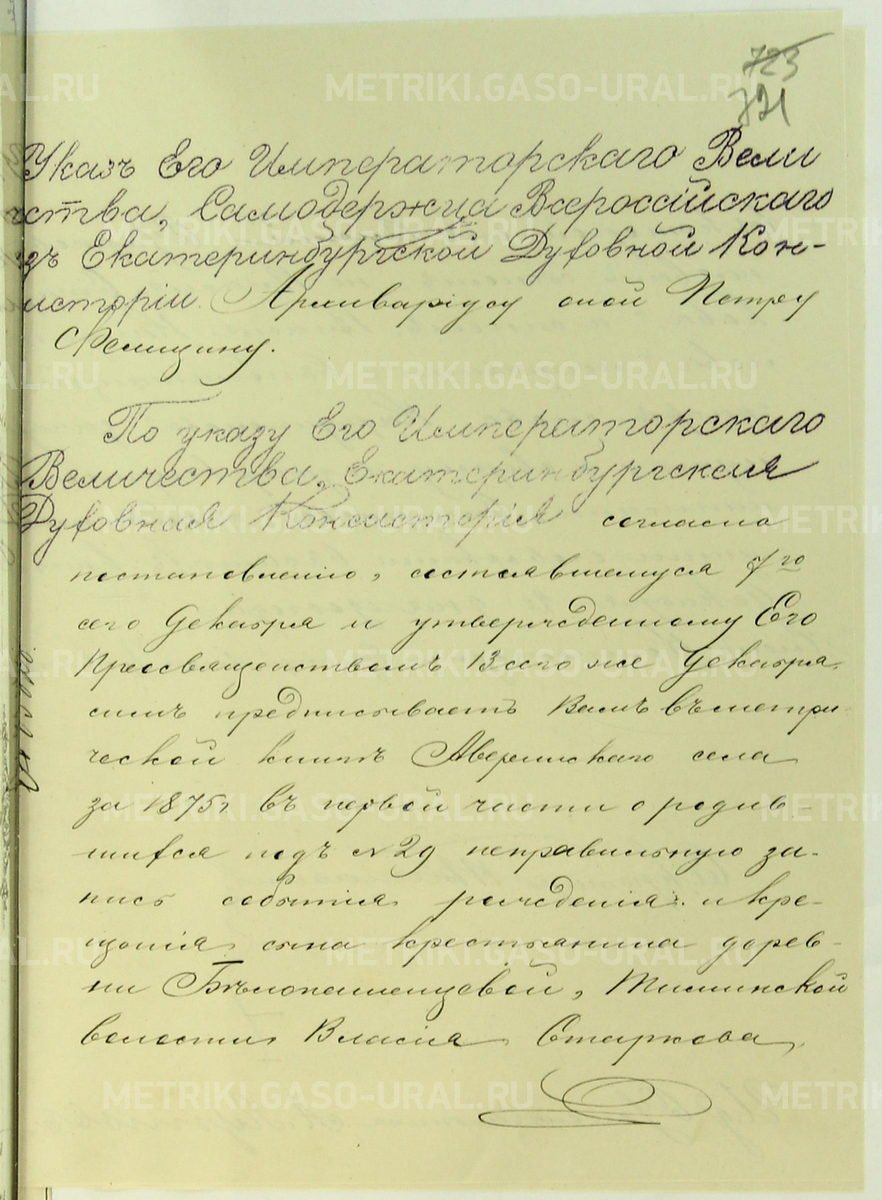 723
721
Указъ Его Императорскаго Вели
чества, Самодержца Всероссійскаго
изъ Екатеринбургской Духовной Кон-
систоріи Архиваріусу оной Петру
По указу Его Императорскаго
Величества, Екатеринбургская
Духовная Консисторія согласно
постановленію, состоявшемуся 7го
сего Декабря и утвержденному Его
Преосвященствомъ 13 сего же Декабря,
симъ предписываетъ Вамъ въ метри-
ческой книгѣ Аверинскаго села
за 1875 г. въ первой части о родив-
шихся подъ № 29 неправильную за-
пись событія рожденія и кре-
щенія сына крестьянина дерев-
ни Бѣлопашенцовой,
волости, Власія Старкова,
METRIKI.GASO-URAL.RU